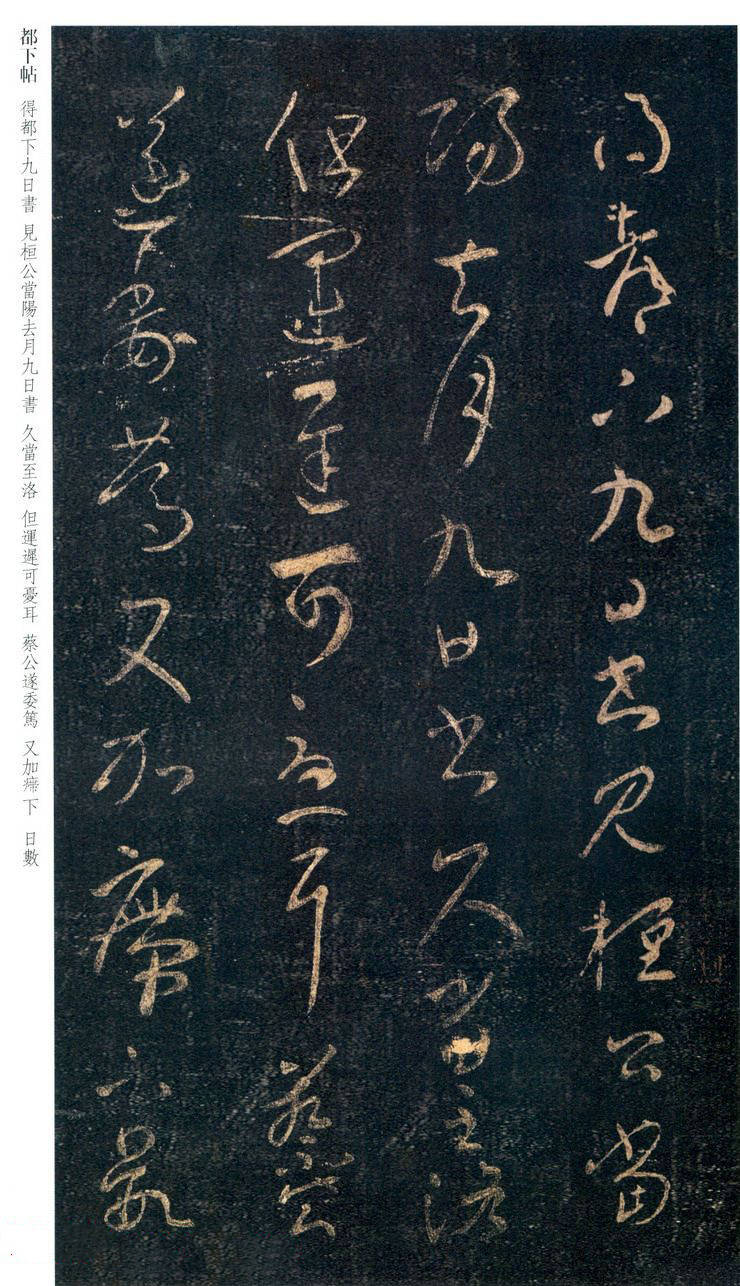 都下帖 得都下九日書 見桓公當陽去月九日書 久當至洛 但運遲可憂耳 蔡公遂委篤 又加㿃下 日數
得都下九日書見桓公當
陽去月九日書久當至洛
但運遲可憂耳蔡公
遂委篤又加㿃下日數